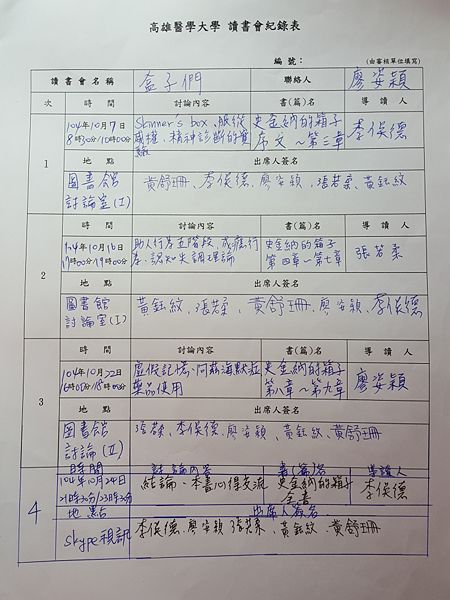 高雄醫學大學 讀書會紀錄表
編號： (由審核單位填寫)
讀書會名稱 盒子們 聯絡人 廖姿穎
次 時間 討論內容 書(篇)名 導讀人
1 104年10月7日 Skinner's box、服從 史金納的箱子 李俁德
8時30分/10時00分 威權、精神診斷的實驗 序文~第三章
地點 出席人簽名
圖書館 黃舒珊、李俁德、廖姿穎、張若柔、黃鈺紋
討論室(I)
時間 討論內容 書(篇)名 導讀人
2 104年10月16日 助人行為五階段、成癮行 史金納的箱子 張若柔
17時00分/19時00分 為、認知失調理論 第四章~第七章
地點 出席人簽名
圖書館 黃鈺紋、張若柔、黃舒珊、廖姿穎、李俁德
討論室(I)
時間 討論內容 書(篇)名 導讀人
3 104年10月22日 虛假記憶、阿茲海默症 史金納的箱子 廖姿穎
16時05分/18時00分 藥品使用 第八章~第九章
地點 出席人簽名
圖書館 張若柔、李俁德、廖姿穎、黃鈺紋、黃舒珊
討論(II)
時間 討論內容 書(篇)名 導讀人
4 104年10月24日 結論、本書心得交流 史金納的箱子 李俁德
21時30分/23時30分 全書
地點 出席人簽名
skype視訊 李俁德、廖姿穎、張若柔、黃鈺紋、黃舒珊